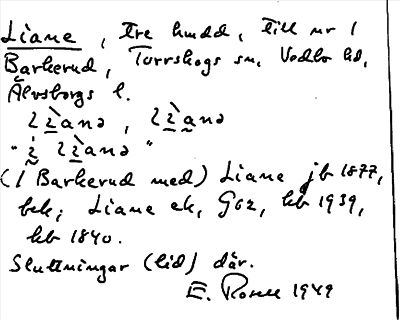 Liane, Tre hudd, till nr 1
Barkerud, Torrskogs sn, Vedbo hd,
Älvsborgs l.
lìanə, lìanə
"i lìanə"
(1 Barkerud med) Liane jb 1877,
bek; Liane ek, Gsz, kb 1939,
kb 1840.
Sluttningar (lid) där.
E. Rosell 1949